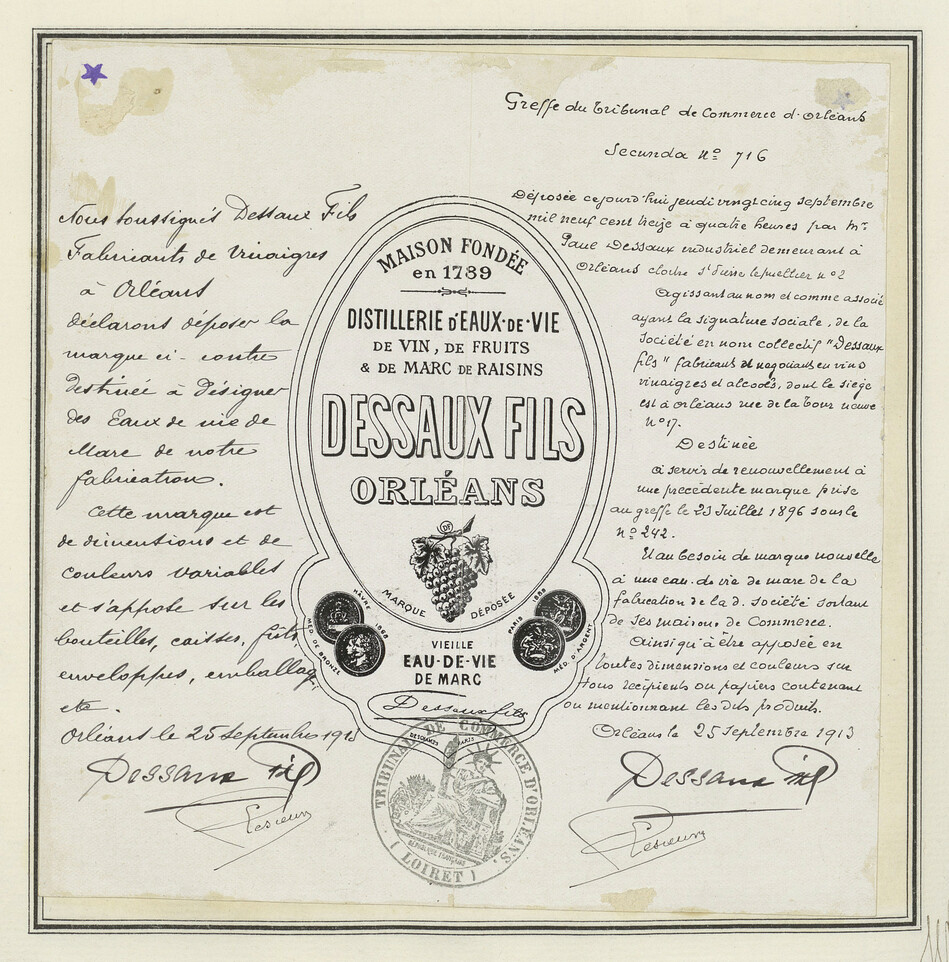 Greffe du Tribunal de Commerce d'Orléans
Secunda Nº 716
Nous soussignés Dessaux Fils
Fabricants de Vinaigres
à Orléans
déclarons déposer la
marque ci-contre
destinée à désigner
des Eaux de vie de
Marc de notre
fabrication.
Cette marque est
de dimentions et de
couleurs variables
et s'appose sur les
bouteilles, caisses, fûts,
enveloppes, emballag,
etc.
Orléans le 25 septembre 1913
Dessaux Fils
MAISON FONDÉE
en 1789
DISTILLERIE D'EAUX-DE-VIE
DE VIN, DE FRUITS
& DE MARC DE RAISINS
DESSAUX FILS
ORLÉANS
DF
MARQUE DÉPOSÉE
HÂVRE
MÉD. DE BRONZE
PARIS
MÉD. D'ARGENT
VIEILLE
EAU-DE-VIE
DE MARC
Dessaux fils
DESCHAMPS PARIS
TRIBUNAL DE COMMERCE D'ORLÉANS.
RÉPUBLIQUE FRANÇAISE
(LOIRET)
Déposée cejourd'hui jeudi vingt cinq septembre
mil neuf cent treize à quatre heures par Mr
Paul Dessaux industriel demeurant à
Orléans cloître St Pierre le puellier nº 2
Agissant au nom et comme associé
ayant la signature sociale, de la
société en nom collectif "Dessaux
fils" fabricant et negociants en vins
vinaigres et alcools, dont le siège
est à orléans rue de la tour neuve
nº 17.
Destinée
à servir de renouvellement à
une precédente marque prise
au greffe le 23 Juillet 1896 sous le
nº 242.
Et au besoin de marque nouvelle
à une eau-de-vie de marc de la
fabrication de la d. société sortant
de ses maisons de Commerce.
Ainsi qu'à être apposée en
toutes dimensions et couleurs sur
tous récipients ou papiers contenant
ou mentionnant les dits produits.
Orléans le 25 septembre 1913
Dessaux Fils